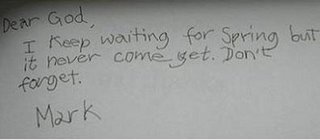 Dear God,
I Keep waiting for Spring but
it never come yet. Don't
forget.
Mark